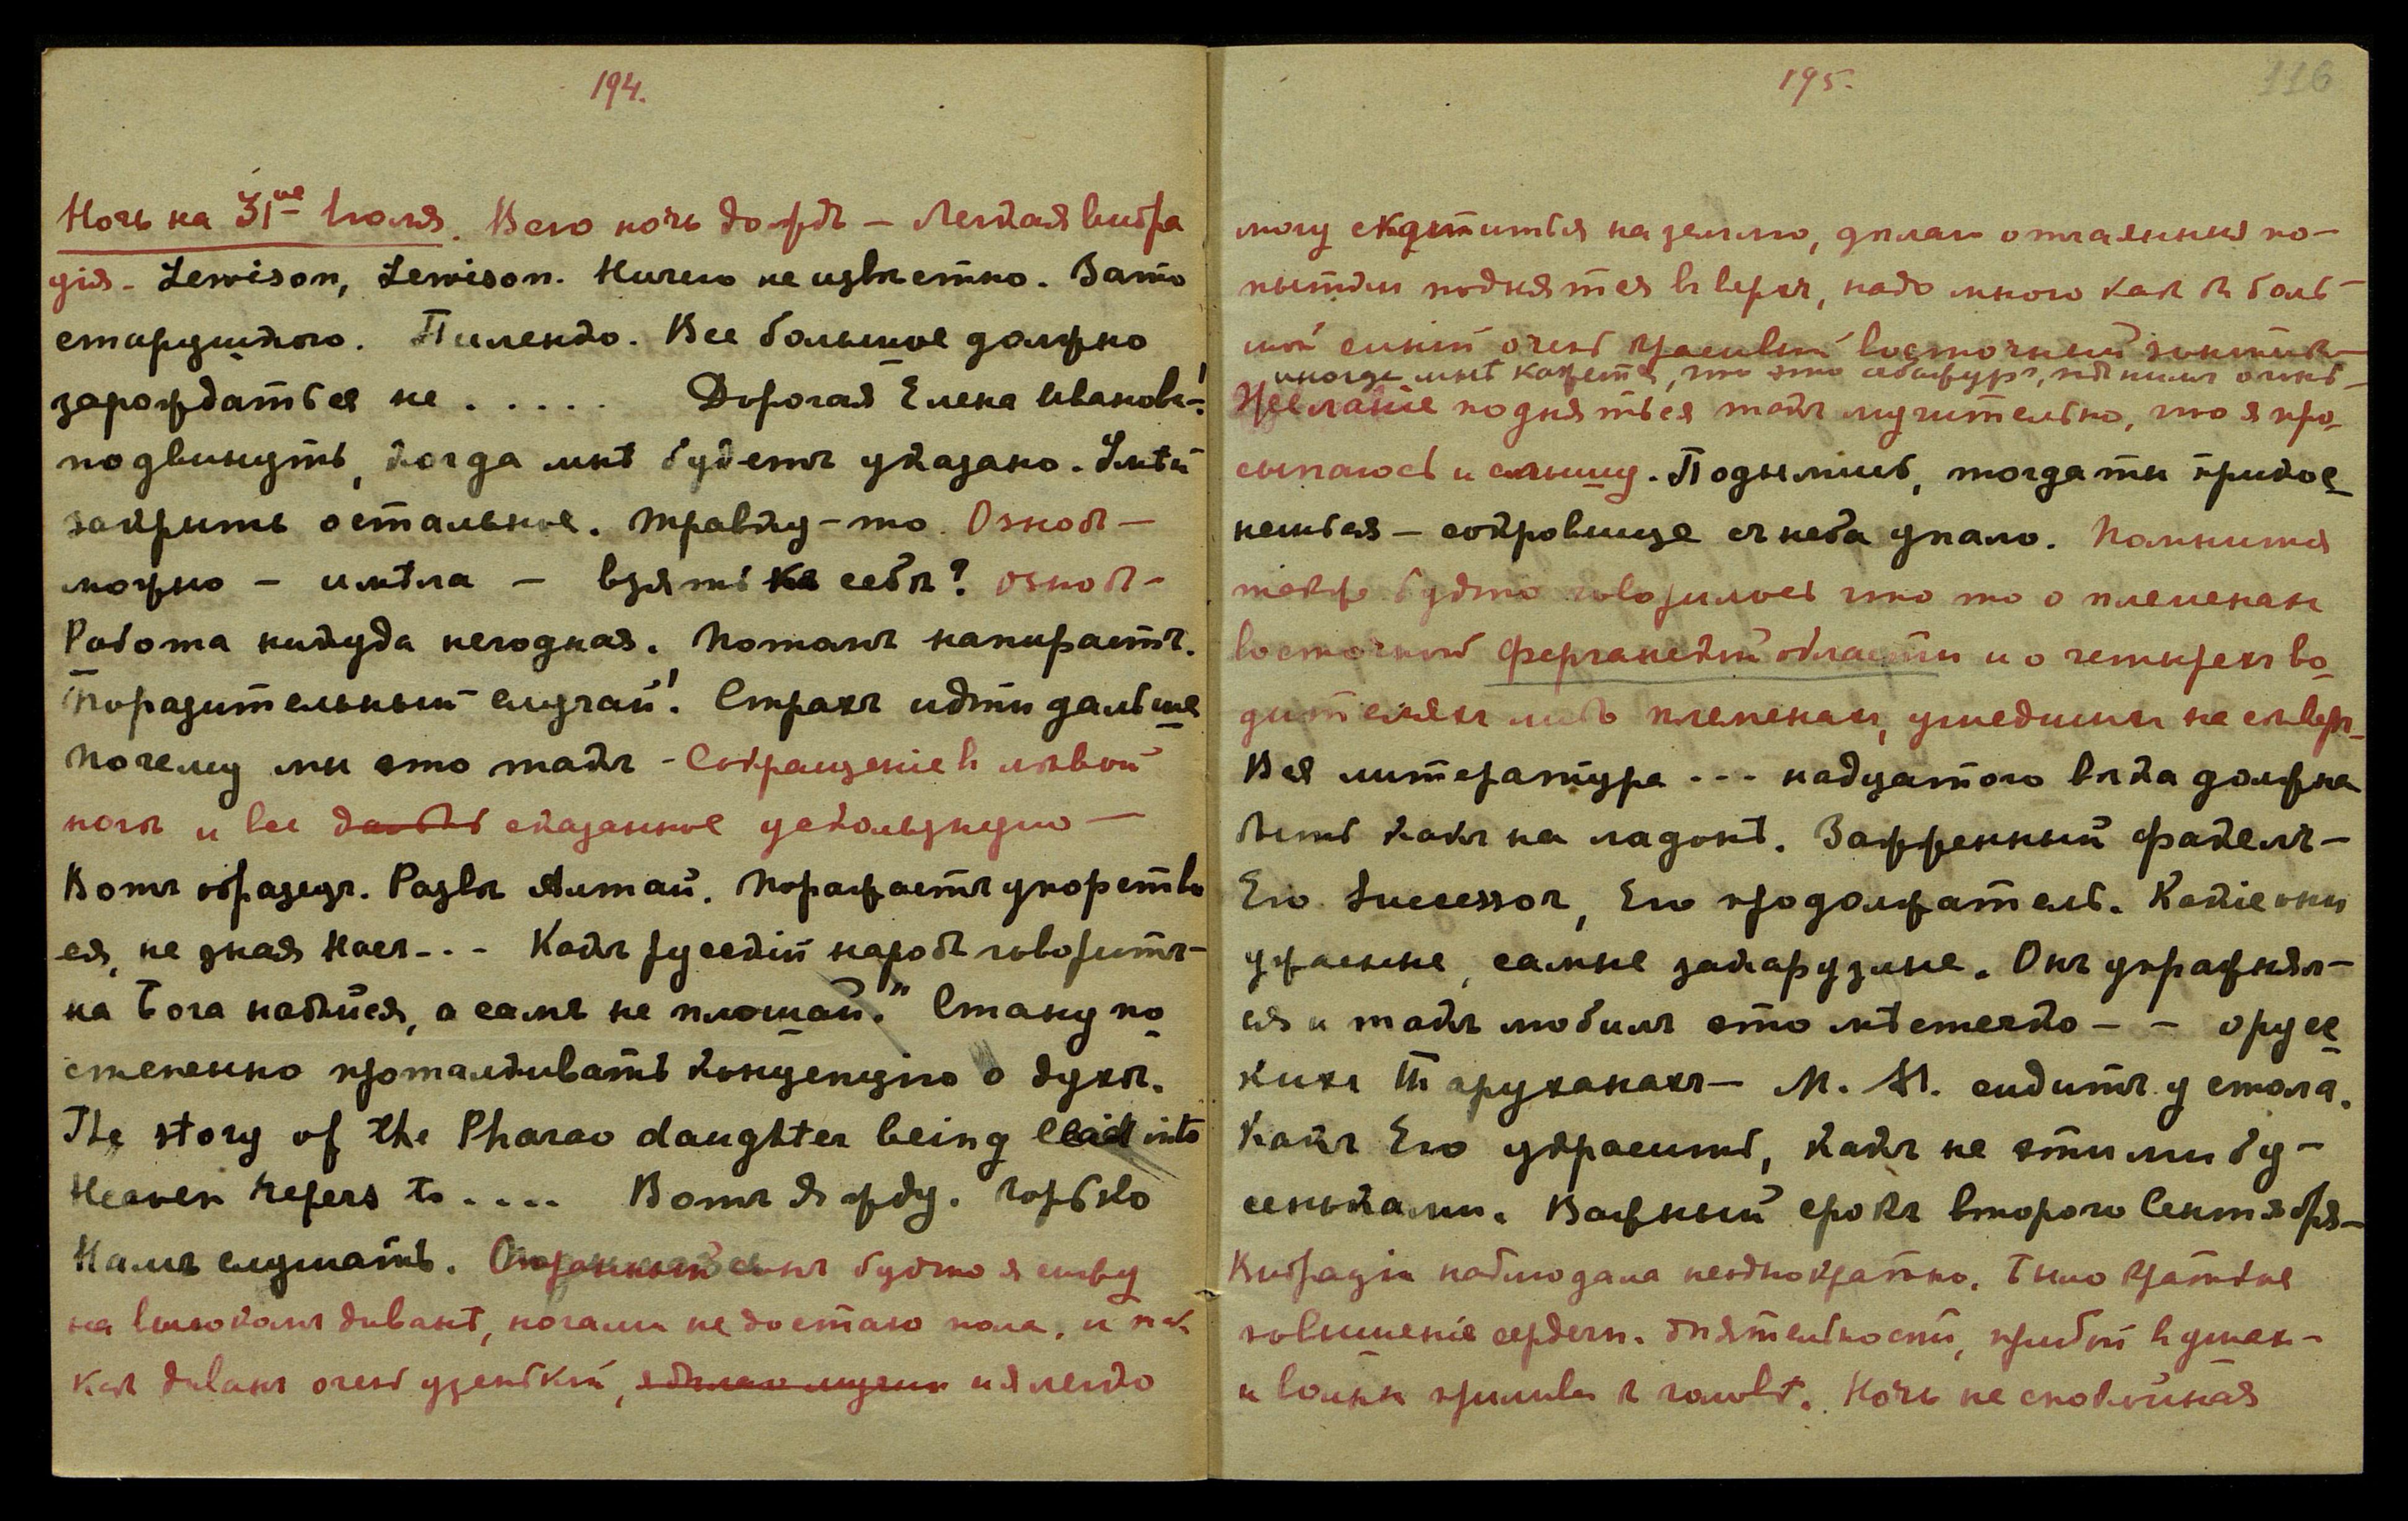 194.
Ночь на 31ое Іюля. Всю ночь дождь – Легкая вибра
ція – Lewison, Lewison. Ничего не извѣстно. Зато
старушкою. Пиленко. Все большое должно
зарождаться не ..... Дорогая Елена Ивановн-!
подвинуть, когда мнѣ будетъ указано. Умѣй
закрыть остальное. травку-то. Ознобъ –
можно – имѣла – взять къ себѣ? ознобъ –
Работа никуда негодная. Потокъ напираетъ.
Поразительный случай! Страхъ идти дальше
Почему мы это такъ – Сокращеніе въ лѣвой
ногѣ и все сказанное ускользнуло –
Вотъ образецъ. Развѣ Алтай. Поражаетъ упорство
ея, не зная Насъ... Какъ русскій народъ говоритъ –
на Бога надѣйся, а самъ не плошай." Стану по
степенно проталкивать концепцію о духѣ.
The story of the Pharao daughter being lead into
Heaven refers to .... Вотъ Я жду. Горько
Намъ слушать. Странный сонъ будто я сижу
на высокомъ диванѣ, ногами не достаю пола, и такъ
какъ диванъ очень узенькій, и я легко
195.
116
могу скатиться на землю, дѣлаю отчаянныя по–
пытки подняться вверхъ, надо мною какъ бы боль–
шой синій очень красивый восточный зонтикъ –
иногда мнѣ кажется, что это абажуръ,
Желаніе подняться такъ мучительно, что я про
сыпаюсь и слышу. Подымись, тогда ты прикос
нешься – сокровище съ неба упало. Помнится
также будто говорилось что то о племенахъ
восточной Ферганской области и о четырехъ во
дителяхъ племенахъ, ушедшихъ на сѣверъ
Вся литература ... надцатого вѣка должна
быть какъ на ладонѣ. Зажженный факелъ –
Его Successor, Его продолжатель. Какіе они
ужасные, самые закарузлые. Онъ упражнял–
ся и такъ любилъ это мѣстечко – – о рус
кихъ Тарханахъ – М. М. сидитъ у стола.
Какъ Его украсить, какъ не этими бу–
сеньками. Важный срокъ второго Сентября –
Вибраціи наблюдала неоднократно. Было краткое
повышеніе сердечн. дѣятельности, прибой въ ушахъ –
и волны прилива къ головѣ. Ночь не спокойная